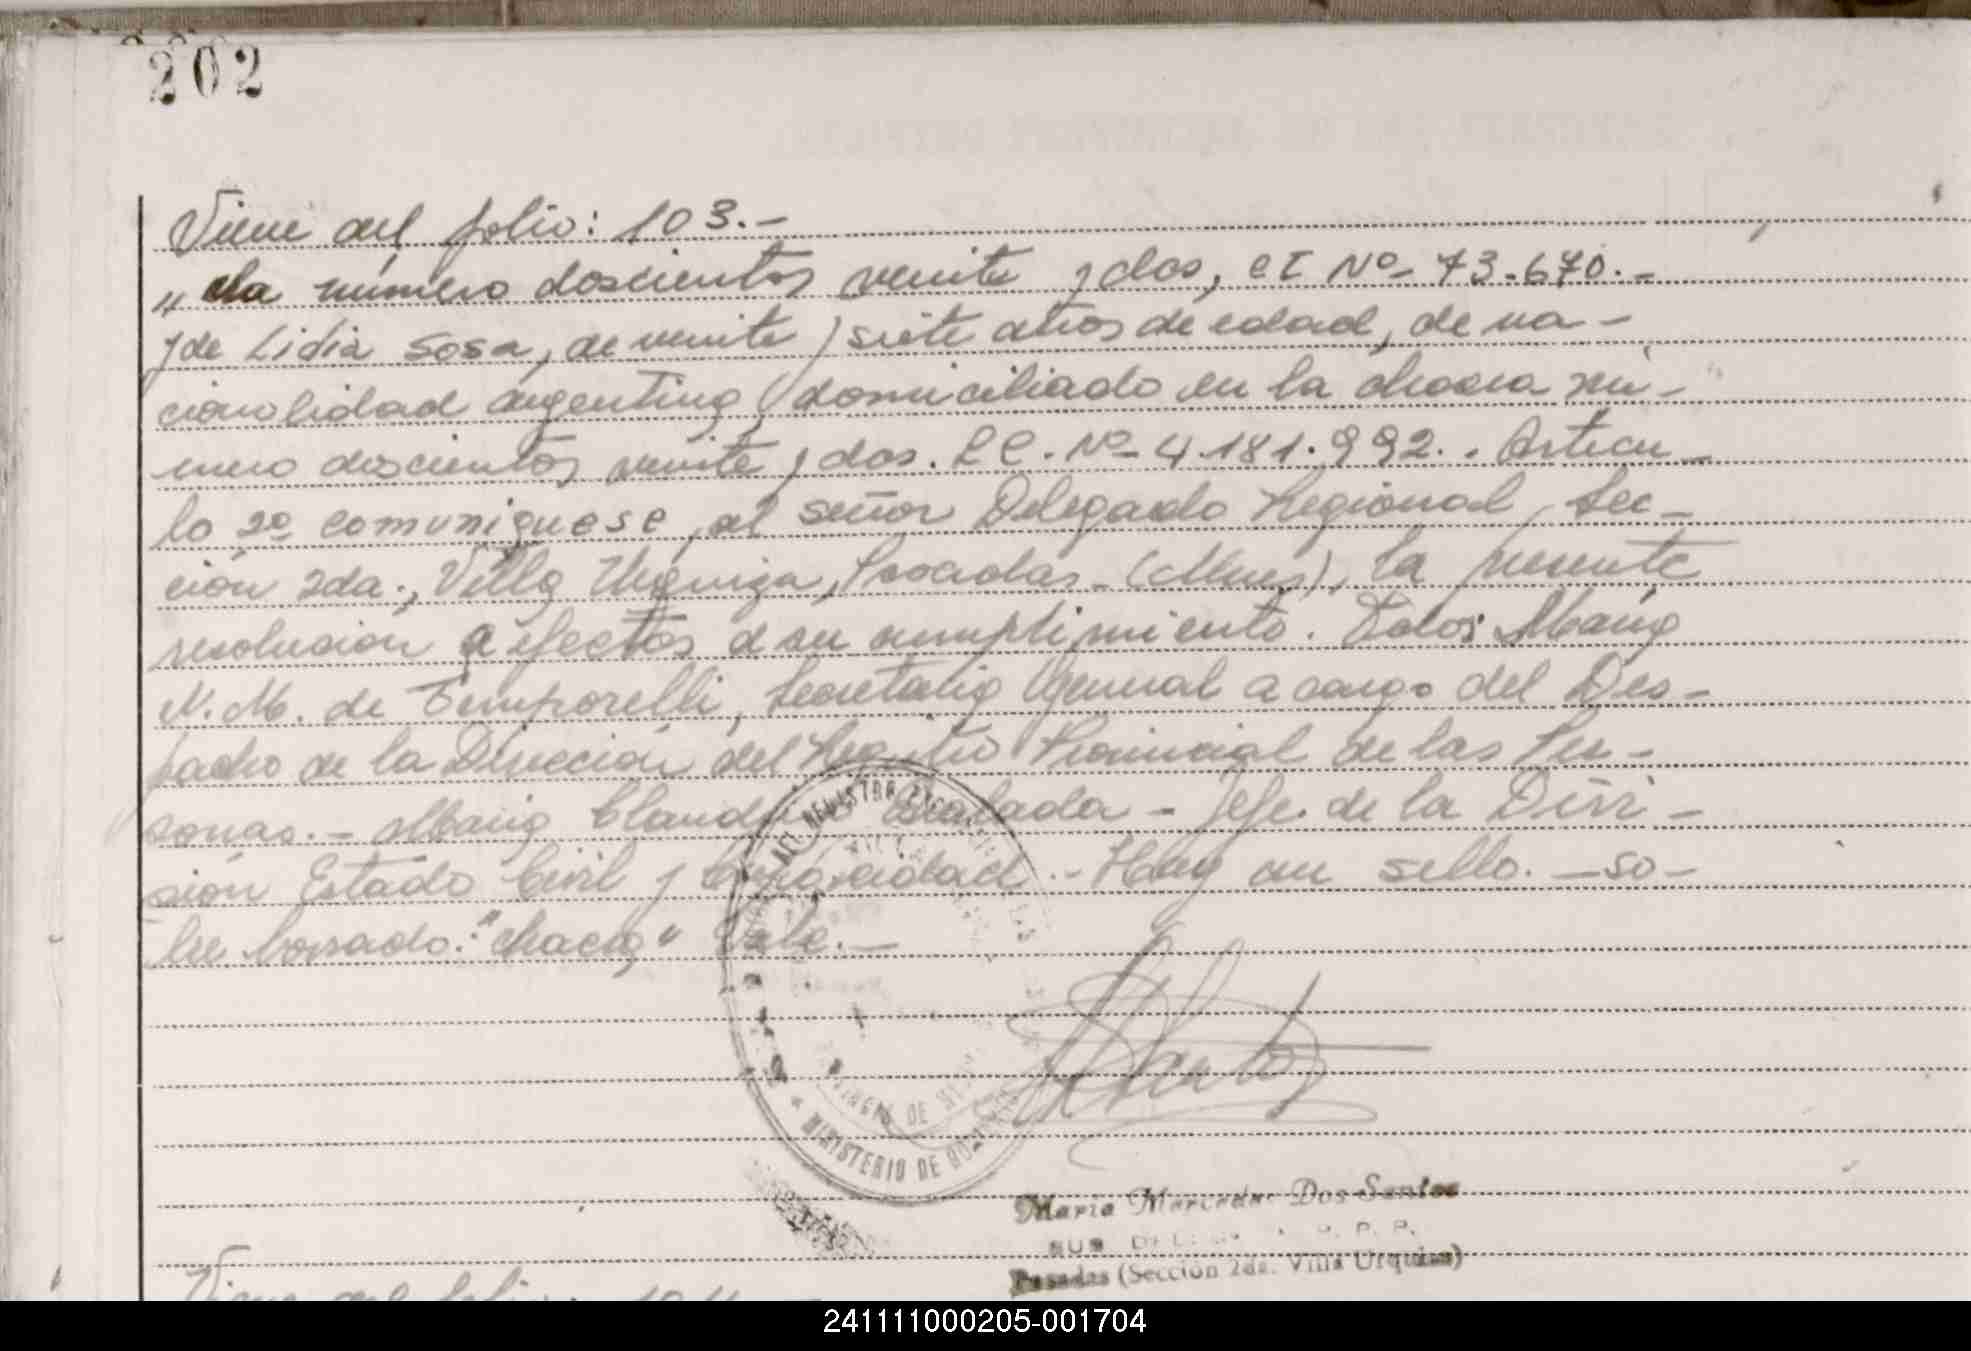 202
Viene del folio: 103.-
"cha número doscientos veinte y dos, C I Nº- 73.670.-
y de Lidia Sosa, de veinte y siete años de edad, de na-
cionalidad argentina, domiciliado en la chacra nú-
mero doscientos veinte y dos. L C. Nº- 4.181.992.. Artícu-
lo 2º comuniquese, al señor Delegado Regional, Sec-
ción 2da., Villa Urquiza, Posadas-(Mnes), la presente
resolución a efectos a su cumplimiento. Fdos: María
N. M. de Temporelli, Secretaria General a cargo del Des-
pacho de la Dirección del Registro Provincial de las Per-
sonas.- María Claudina Escalada - Jefe. de la Divi-
sión Estado Civil y Capacidad.- Hay un sello. - So-
bre borrado: "chacra" Vale.-
MINISTERIO DE
María Mercedes Dos Santos
SUB
Posadas (Sección 2da. Villa Urquiza)
Viene del folio: 104 -
241111000205-001704